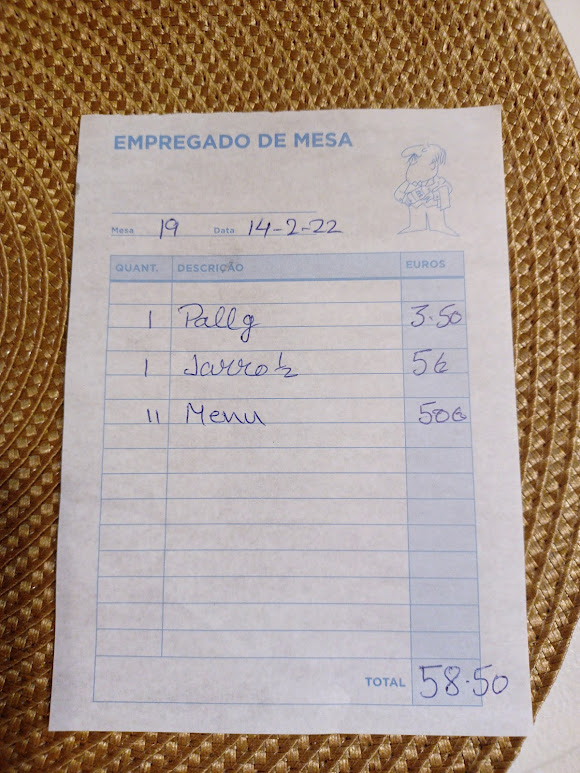 EMPREGADO DE MESA
Mesa 19 Data 14-2-22
QUANT. DESCRIÇÃO EUROS
1 Pallg 3.50
1 Jarro 1/2 5€
11 Menu 50€
TOTAL 58.50